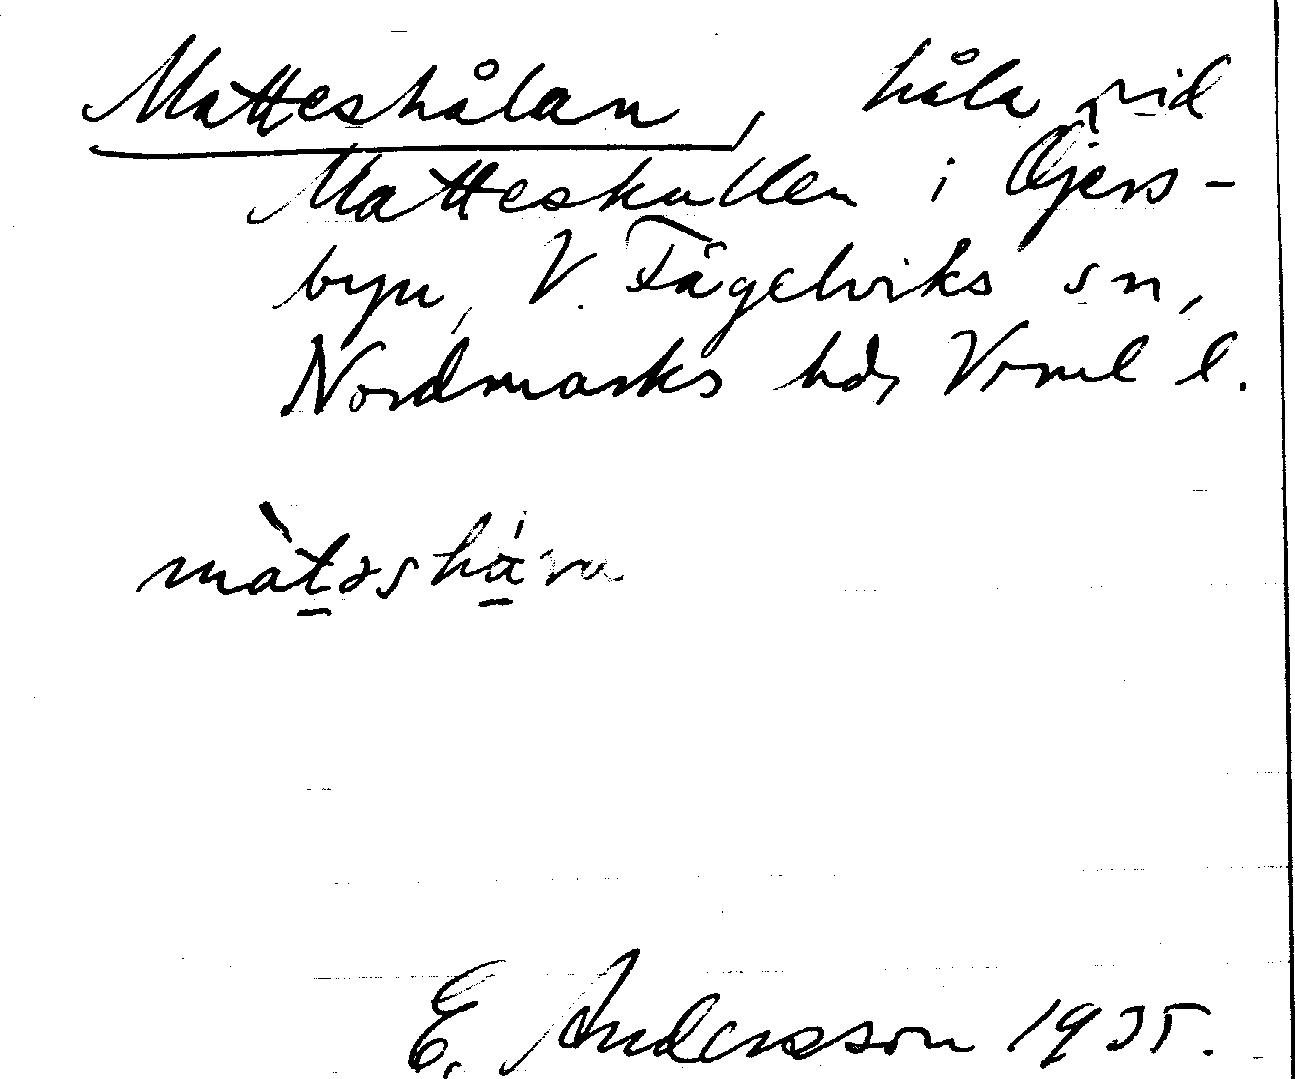 Matteshålan, håla vid
Matteskullen i Öjers-
byn, V. Fågelviks sn,
Nordmarks hd, Vrml l.
E. Andersson 1935.